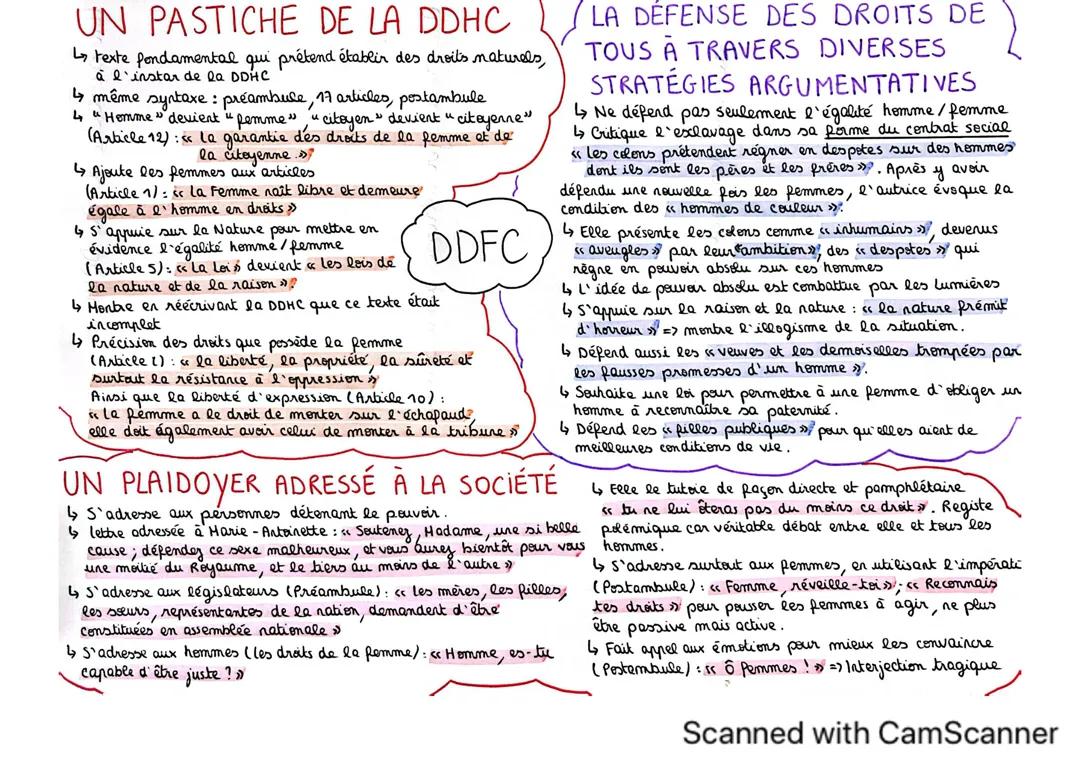 UN PASTICHE DE LA DDHC
↳ texte fondamental qui prétend établir des droits naturels,
à l'instar de la DDHC
↳ même syntaxe : préambule, 17 articles, postambule
↳ "Homme" devient "femme" "citoyen" devient "citoyenne"
(Article 12) : « la garantie des droits de la femme et de
la citoyenne. »
↳ Ajoute les femmes aux articles
(Article 1) : « La Femme naît libre et demeure
égale à l'homme en droits »
↳ S'appuie sur la Nature pour mettre en
évidence l'égalité homme/femme
(Article 5) : « La Loi » devient « les lois de
la nature et de la raison ».
↳ Montre en réécrivant la DDHC que ce texte était
incomplet
↳ Précision des droits que possède la femme
(Article 2) : « la liberté, la propriété, la sûreté et
surtout la résistance à l'oppression »
Ainsi que la liberté d'expression (Article 10) :
« la femme a le droit de monter sur l'échafaud,
elle doit également avoir celui de monter à la tribune »
DDFC
LA DÉFENSE DES DROITS DE
TOUS À TRAVERS DIVERSES
STRATÉGIES ARGUMENTATIVES
↳ Ne défend pas seulement l'égalité homme/femme
↳ Critique l'esclavage dans sa forme du contrat social
« les colons prétendent régner en despotes sur des hommes
dont ils sont les pères et les frères ». Après y avoir
défendu une nouvelle fois les femmes, l'autrice évoque la
condition des « hommes de couleur ».
↳ Elle présente les colons comme « inhumains », devenus
« aveugles » par leur "ambition", des « despotes » qui
règne en pouvoir absolu sur ces hommes
↳ L'idée de pouvoir absolu est combattue par les Lumières
↳ S'appuie sur la raison et la nature : « la nature frémit
d'horreur » => montre l'illogisme de la situation.
↳ Défend aussi les « veuves et les demoiselles trompées par
les fausses promesses d'un homme ».
↳ Souhaite une loi pour permettre à une femme d'obliger un
homme à reconnaître sa paternité.
↳ Défend les « filles publiques » pour qu'elles aient de
meilleures conditions de vie.
UN PLAIDOYER ADRESSÉ À LA SOCIÉTÉ
↳ S'adresse aux personnes détenant le pouvoir.
↳ lettre adressée à Marie-Antoinette : « Soutenez, Madame, une si belle
cause ; défendez ce sexe malheureux, et vous aurez bientôt pour vous
une moitié du Royaume, et le tiers au moins de l'autre »
↳ S'adresse aux législateurs (Préambule) : « les mères, les filles,
les sœurs, représentantes de la nation, demandent d'être
constituées en assemblée nationale »
↳ S'adresse aux hommes (les droits de la femme) : « Homme, es-tu
capable d'être juste ? »
↳ Elle le tutoie de façon directe et pamphlétaire
« tu ne lui ôteras pas du moins ce droit ». Registe
polémique car véritable débat entre elle et tous les
hommes.
↳ S'adresse surtout aux femmes, en utilisant l'impérati
(Postambule) : « Femme, réveille-toi » ; « Reconnais
tes droits » pour pousser les femmes à agir, ne plus
être passive mais active.
↳ Fait appel aux émotions pour mieux les convaincre
(Postambule) : « Ô femmes ! » => Interjection tragique
Scanned with CamScanner